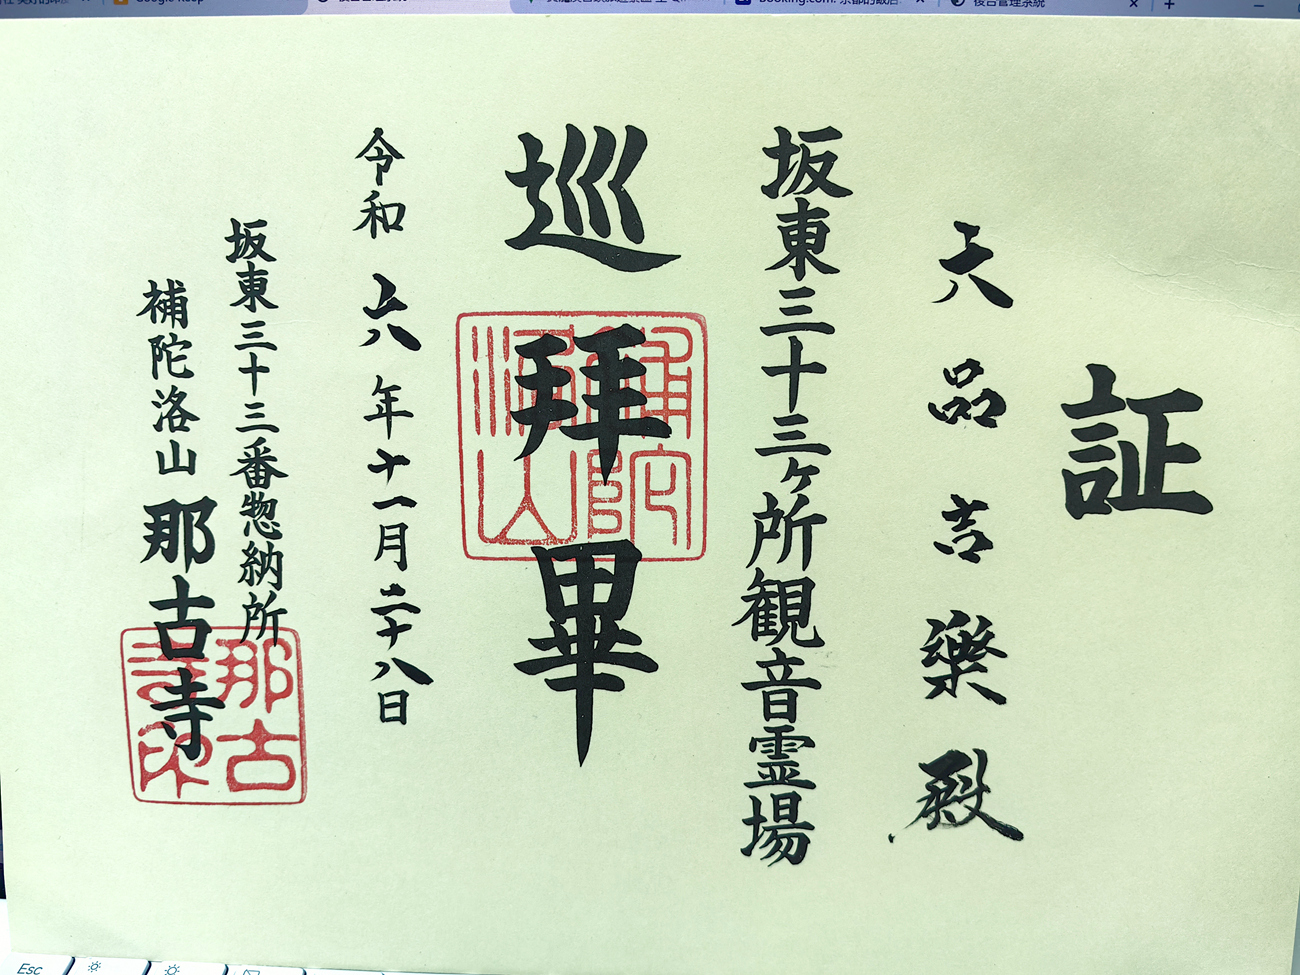 Google Keep
後台管理系統
証
品吉樂殿
坂東三十三ヶ所観音霊場
巡拜畢
補陀
洛山
令和六年十一月二十八日
坂東三十三番惣納所
補陀洛山那古寺
那古
寺印
Esc